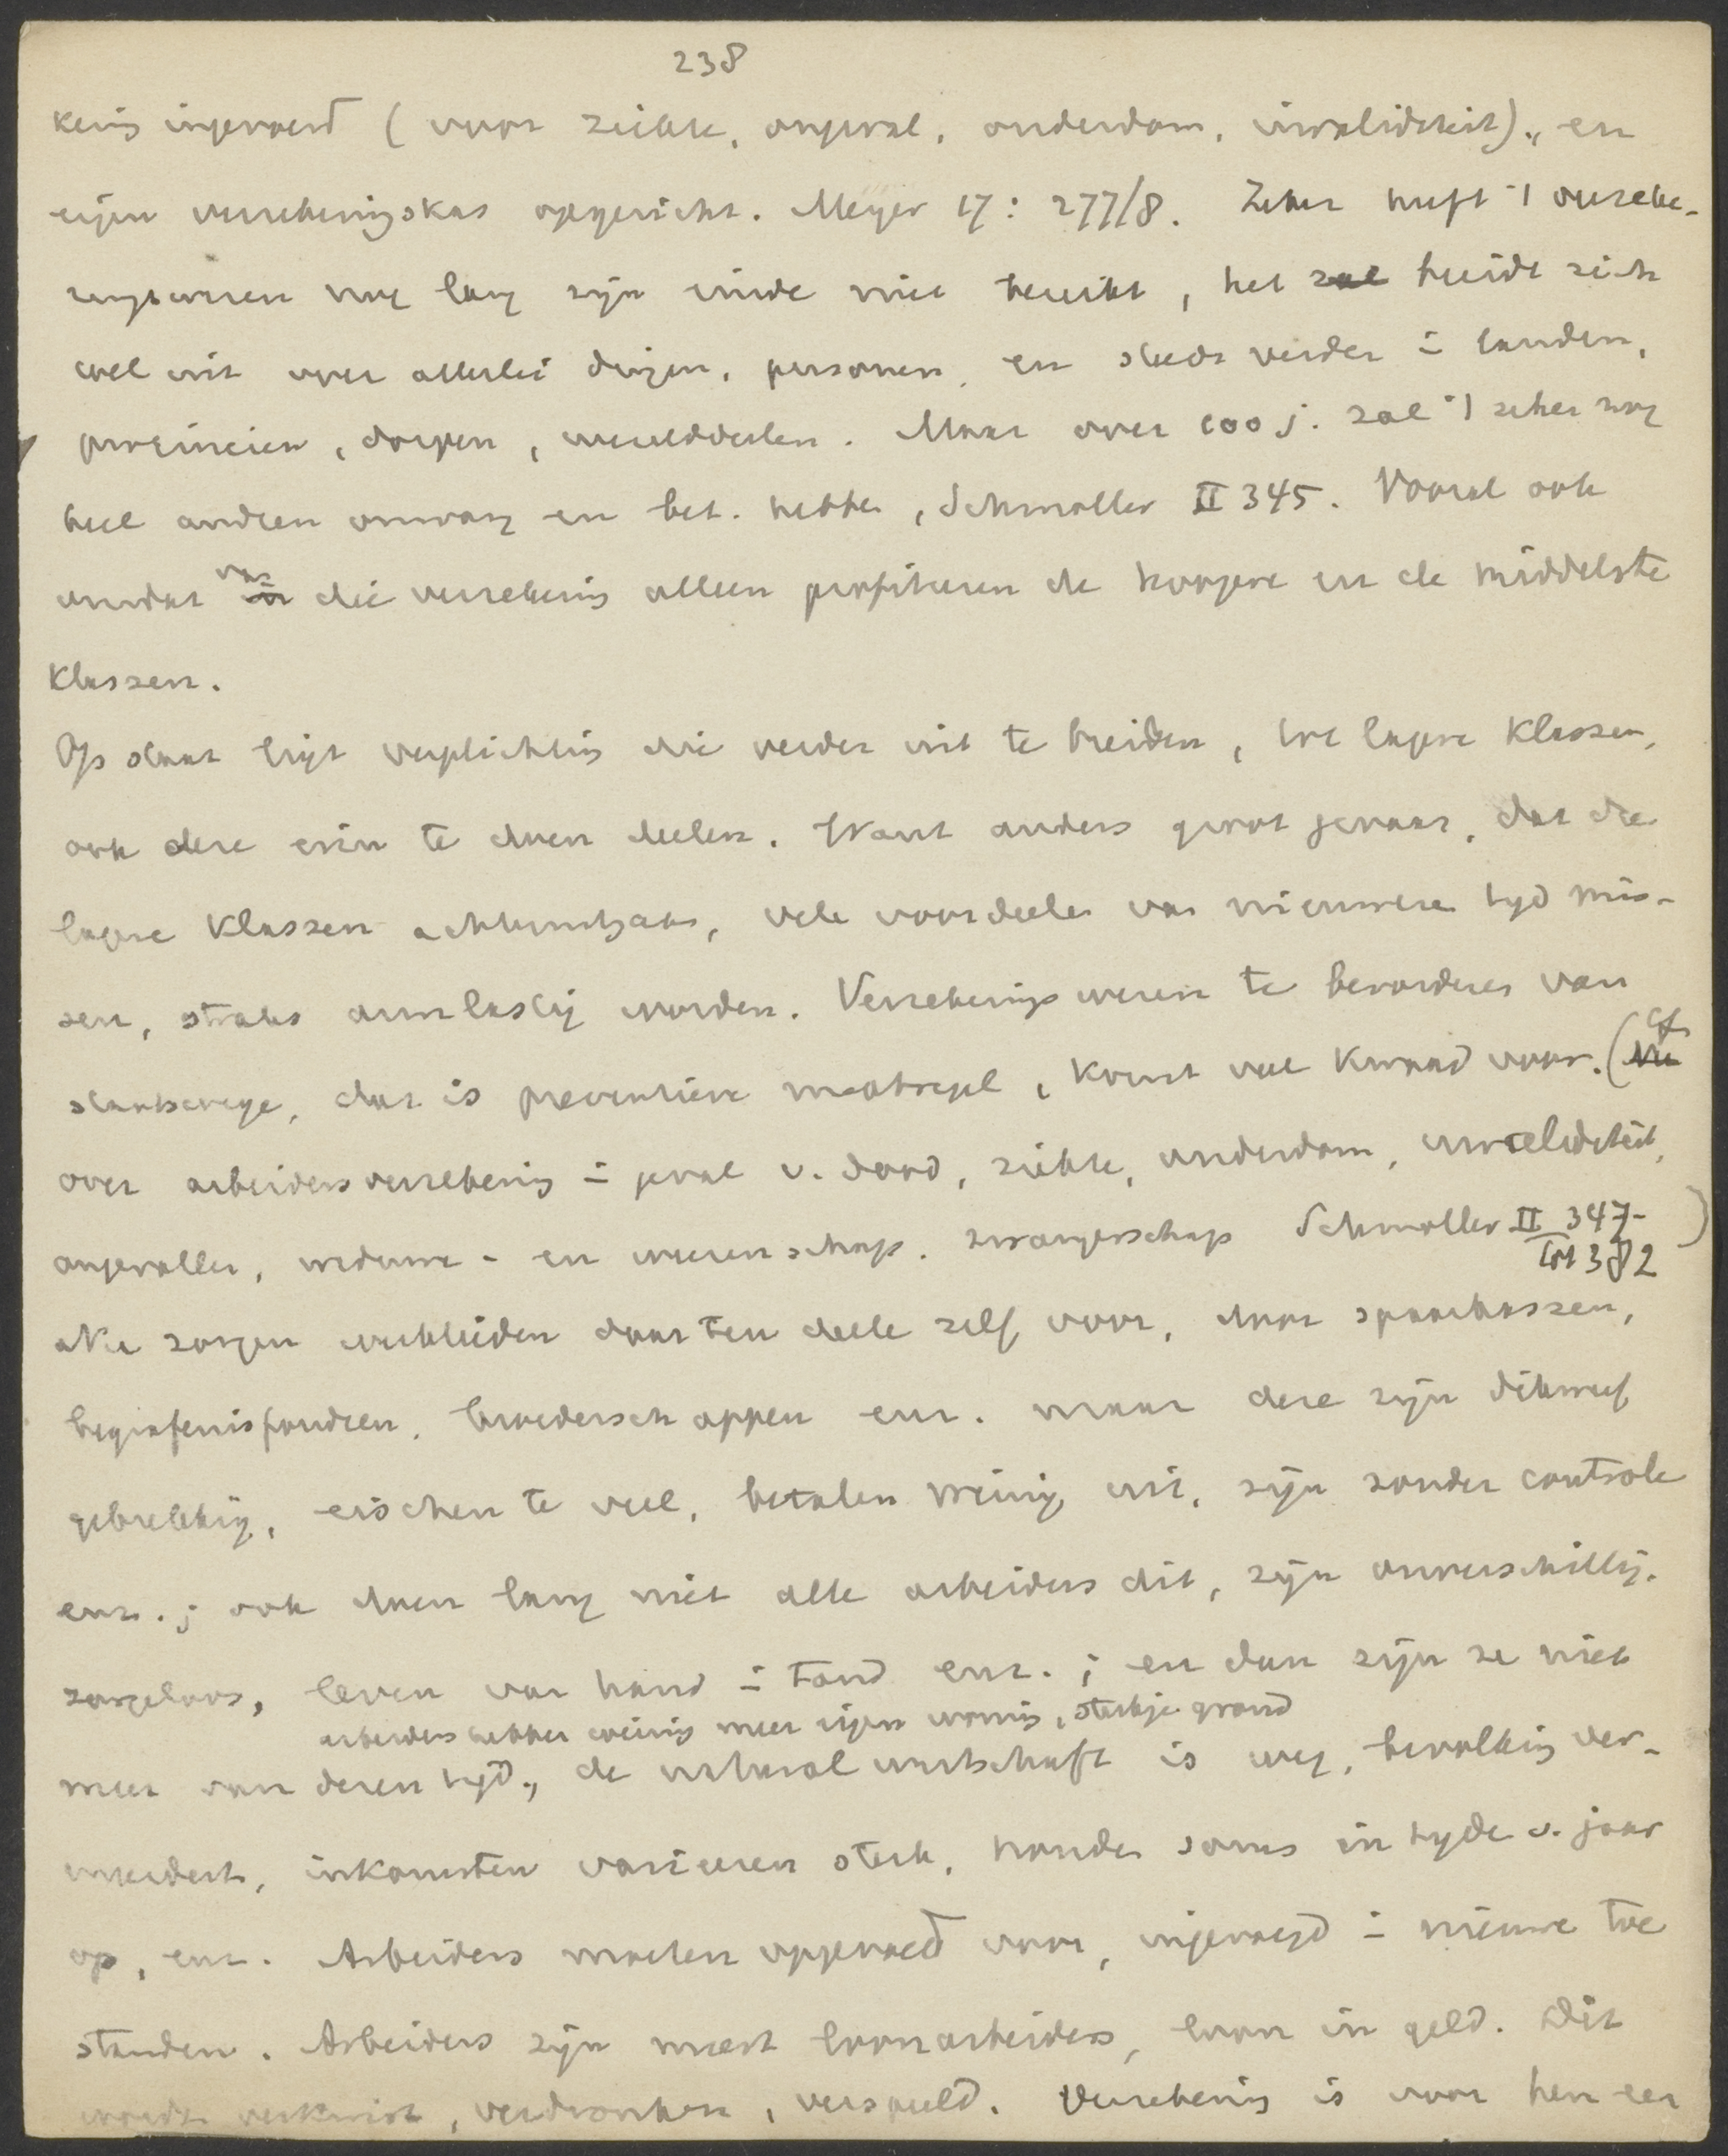 238
kering ingevoerd (voor ziekte, ongeval, ouderdom, invaliditeit)., en
eigen verzekeringskas opgericht. Meyer 17: 277/8. Zeker heeft 't verzeke-
ringswezen nog lang zijn einde niet bereikt, het zal breidt zich
wel uit over allerlei dingen, personen, en steeds verder i landen,
provincien, dorpen, werelddeelen. Maar over 100 j. zal 't zeker nog
heel andren omvang en bet. hebben, Schmoller II 345. Vooral ook
omdat in van die verzekering alleen profiteeren de hoogere en de middelste
Klassen.
Op staat ligt verplichting die verder uit te breiden, tot lagere Klassen,
ook deze erin te doen deelen. Want anders groot gevaar, dat de
lagere Klassen achteruitgaan, vele voordeelen van nieuwere tyd mis-
sen, straks armlastig worden. Verzekeringswezen te bevorderen van
staatswege, dat is preventieve maatregel, komt veel Kwaad voor. (Nu cf
over arbeidersverzekering i geval v. dood, ziekte, ouderdom, invaliditeit,
ongevallen, weduwe- en weezenschap. zwangerschap Schmoller II 347-
tot 382)
Nu zorgen werklieden daar ten deele zelf voor, door spaarkassen,
begrafenisfondsen, broederschappen enz. maar deze zijn dikwerf
gebrekkig, eischen te veel, betalen weinig uit, zijn zonder controle
enz.; ook doen lang niet alle arbeiders dit, zijn onverschillig.
zorgeloos, leven van hand i tand enz.; en dan zijn ze niet
arbeiders hebben weinig meer eigen woning, stukje grond
meer van dezen tijd., de naturalwirtschaft is weg, bevolking ver-
meerdert, inkomsten varieeren sterk, houden soms in tyde v. jaar
op, enz. Arbeiders moeten opgevoed voor, ingevoegd i nieuwe toe
standen. Arbeiders zijn meest loonarbeiders, loon in geld. Dit
wordt verkwist, verdronken, verspeeld. Verzekering is voor hen een